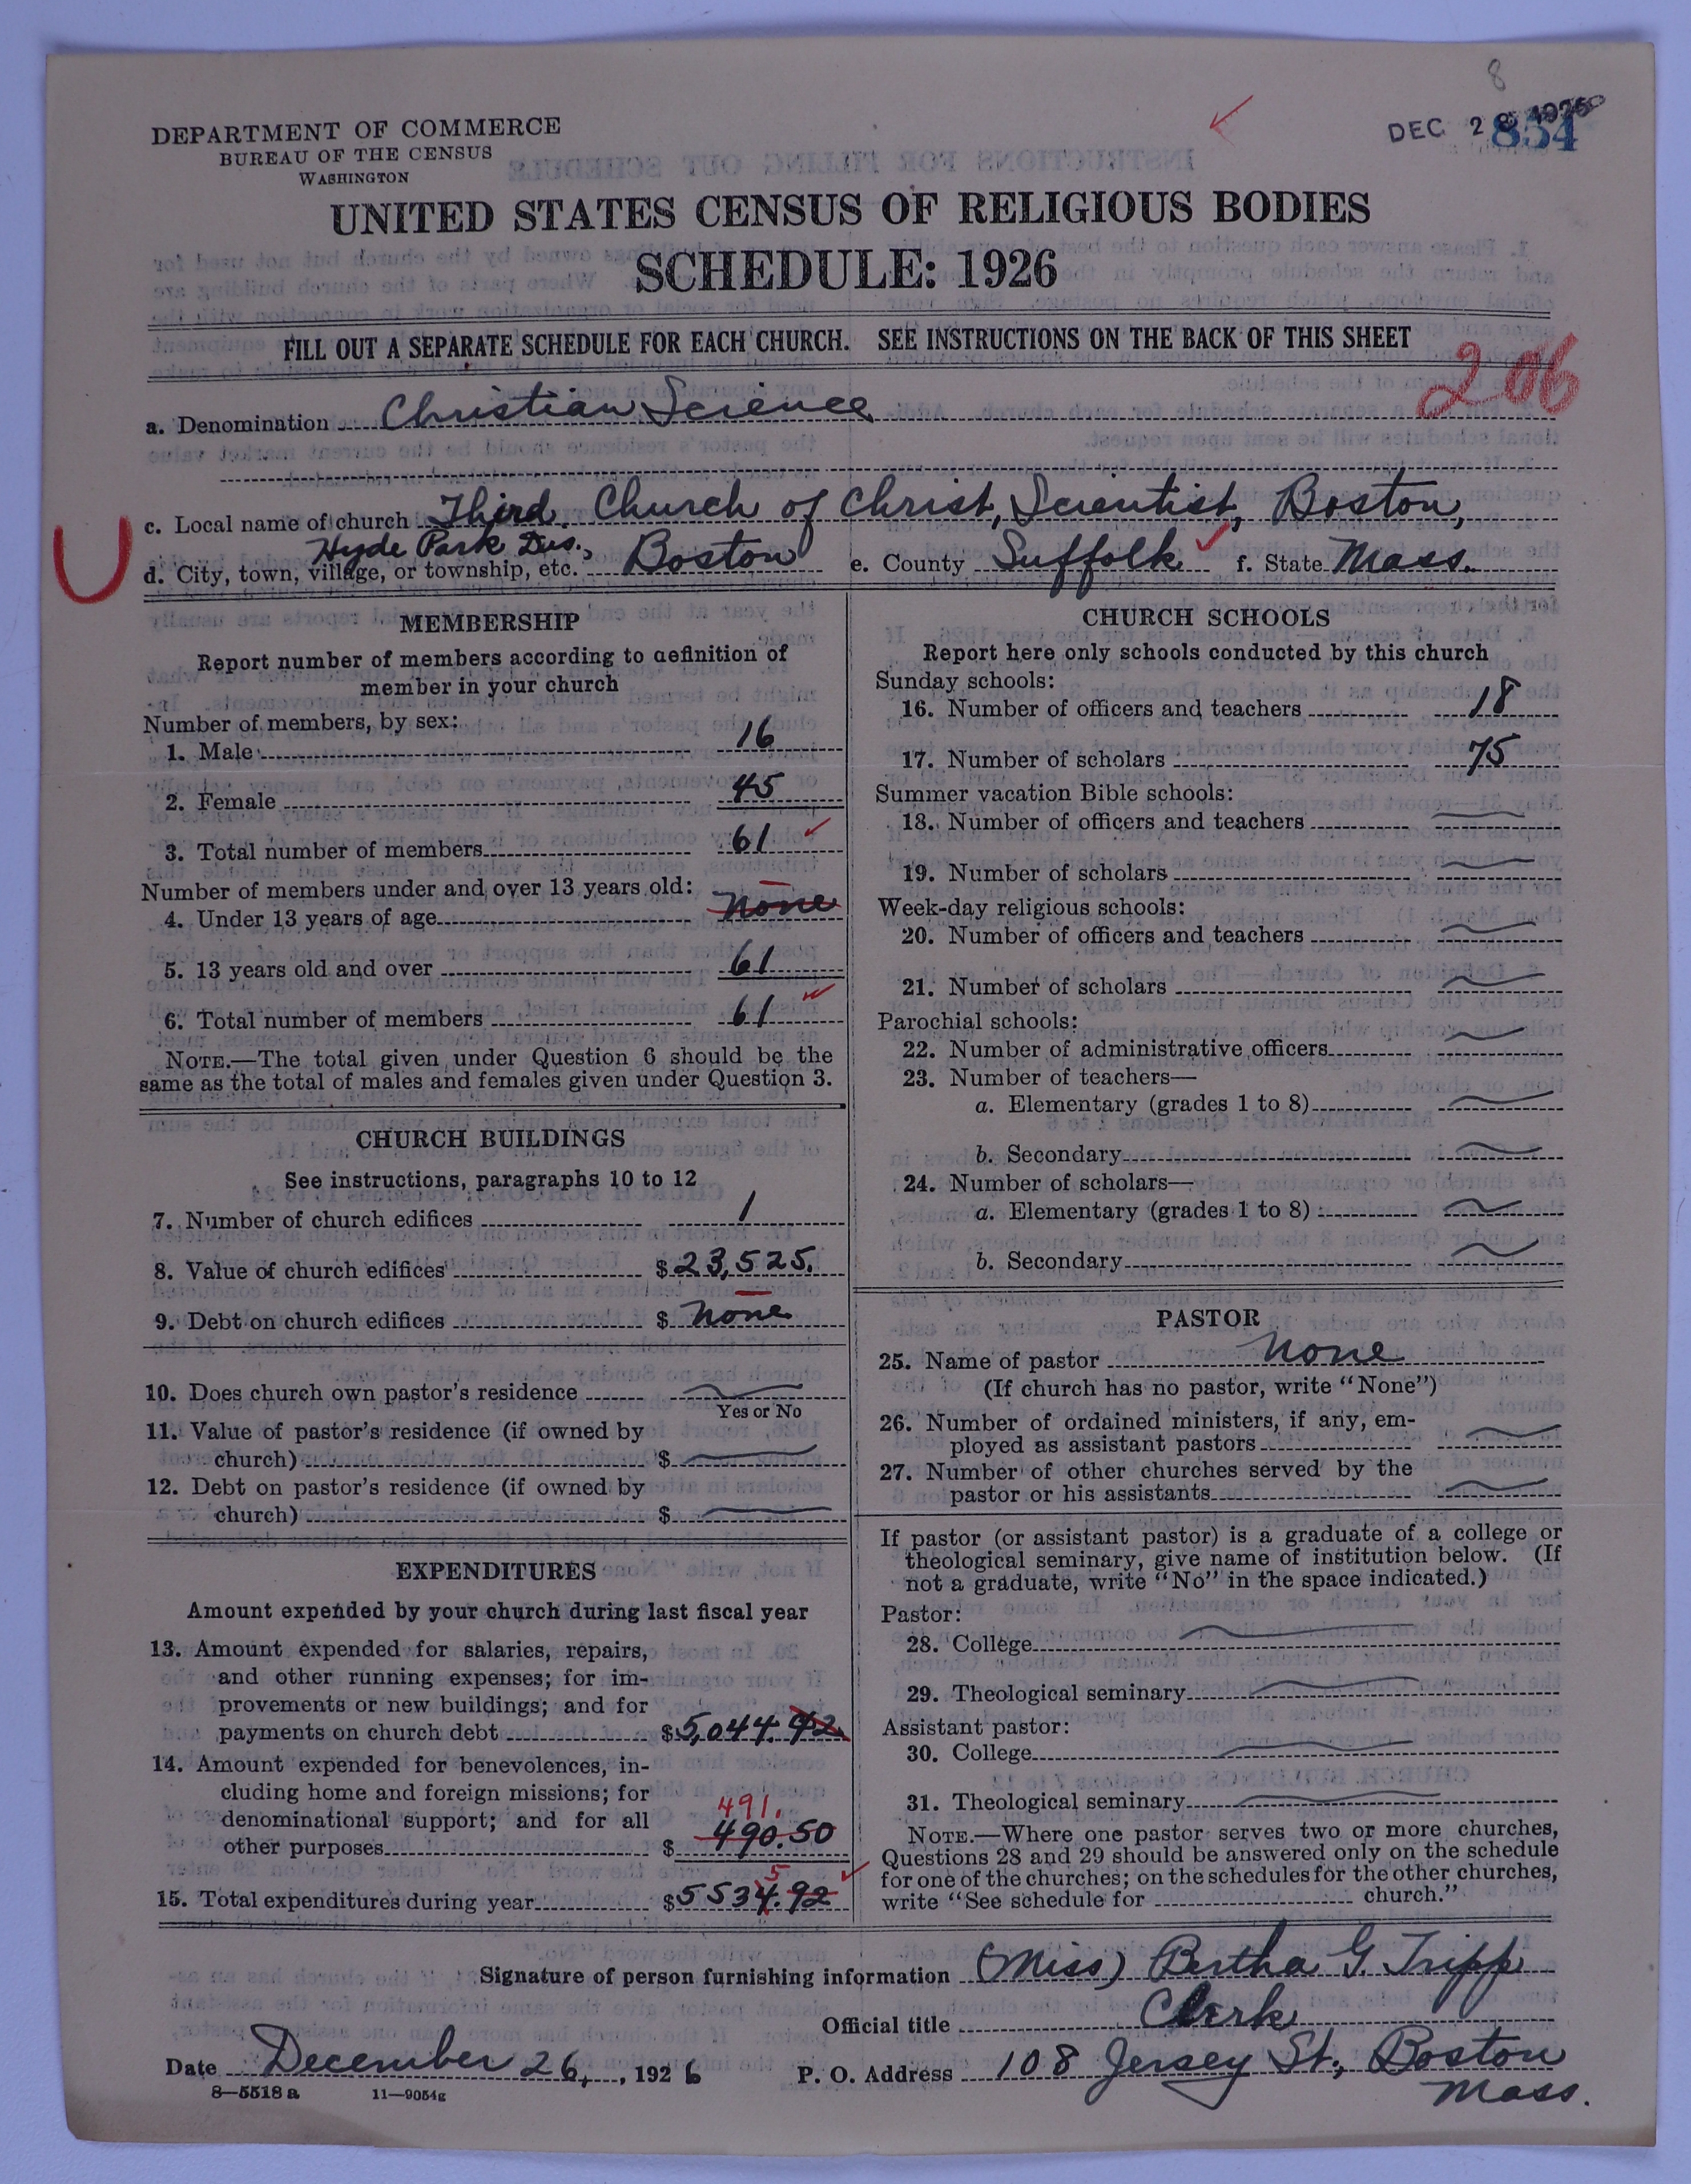 8
DEPARTMENT OF COMMERCE
BUREAU OF THE CENSUS
WASHINGTON
DEC 2 1926
854
UNITED STATES CENSUS OF RELIGIOUS BODIES
SCHEDULE: 1926
FILL OUT A SEPARATE SCHEDULE FOR EACH CHURCH. SEE INSTRUCTIONS ON THE BACK OF THIS SHEET
206
a. Denomination Christian Science
c. Local name of church Third Church of Christ, Scientist, Boston,
Hyde Park Dis.,
d. City, town, village, or township, etc. Boston e. County Suffolk f. State Mass.
MEMBERSHIP
Report number of members according to definition of
member in your church
Number of members, by sex:
1. Male 16
2. Female 45
3. Total number of members 61
Number of members under and over 13 years old:
4. Under 13 years of age none
5. 13 years old and over 61
6. Total number of members 61
NOTE.—The total given under Question 6 should be the
same as the total of males and females given under Question 3.
CHURCH BUILDINGS
See instructions, paragraphs 10 to 12
7. Number of church edifices 1
8. Value of church edifices $23,525.
9. Debt on church edifices $ none
10. Does church own pastor's residence
Yes or No
11. Value of pastor's residence (if owned by
church) $
12. Debt on pastor's residence (if owned by
church) $
EXPENDITURES
Amount expended by your church during last fiscal year
13. Amount expended for salaries, repairs,
and other running expenses; for im-
provements or new buildings; and for
payments on church debt $5,044.42
14. Amount expended for benevolences, in-
cluding home and foreign missions; for
denominational support; and for all
491.
other purposes $ 490.50
5
15. Total expenditures during year $5534.92
CHURCH SCHOOLS
Report here only schools conducted by this church
Sunday schools:
16. Number of officers and teachers 18
17. Number of scholars 75
Summer vacation Bible schools:
18. Number of officers and teachers
19. Number of scholars
Week-day religious schools:
20. Number of officers and teachers
21. Number of scholars
Parochial schools:
22. Number of administrative officers
23. Number of teachers—
a. Elementary (grades 1 to 8)
b. Secondary
24. Number of scholars—
a. Elementary (grades 1 to 8)
b. Secondary
PASTOR
25. Name of pastor None
(If church has no pastor, write "None")
26. Number of ordained ministers, if any, em-
ployed as assistant pastors
27. Number of other churches served by the
pastor or his assistants
If pastor (or assistant pastor) is a graduate of a college or
theological seminary, give name of institution below. (If
not a graduate, write "No" in the space indicated.)
Pastor:
28. College
29. Theological seminary
Assistant pastor:
30. College
31. Theological seminary
NOTE.—Where one pastor serves two or more churches,
Questions 28 and 29 should be answered only on the schedule
for one of the churches; on the schedules for the other churches,
write "See schedule for church."
Signature of person furnishing information (Miss) Bertha G. Tripp
Official title Clerk
Date December 26, 1926 P. O. Address 108 Jersey St., Boston
Mass.
8—5518 a 11—9054g